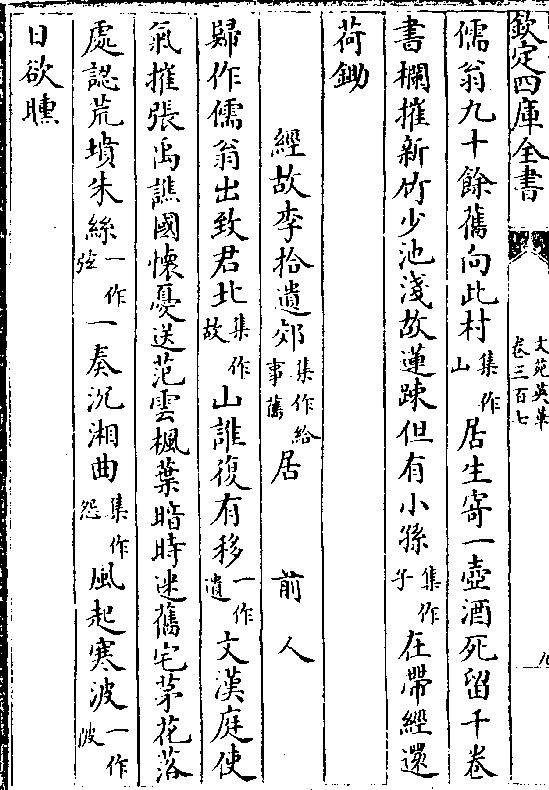 欽定四庫全書
文苑英華
卷三百七
儒翁九十餘舊向此村集作山居生寄一壺酒死留千卷
書欄摧新竹少池淺故蓮踈但有小孫集作子在帶經還
荷鋤
經故李拾遺郊集作給事舊居 前人
歸作儒翁出致君北集作故山誰復有移一作遺文漢庭使
氣摧張禹譙國懐憂送范雲楓葉暗時迷舊宅茅花落
處認荒墳朱絲一作弦一奏沉湘曲集作怨風起寒波一作波
日欲曛